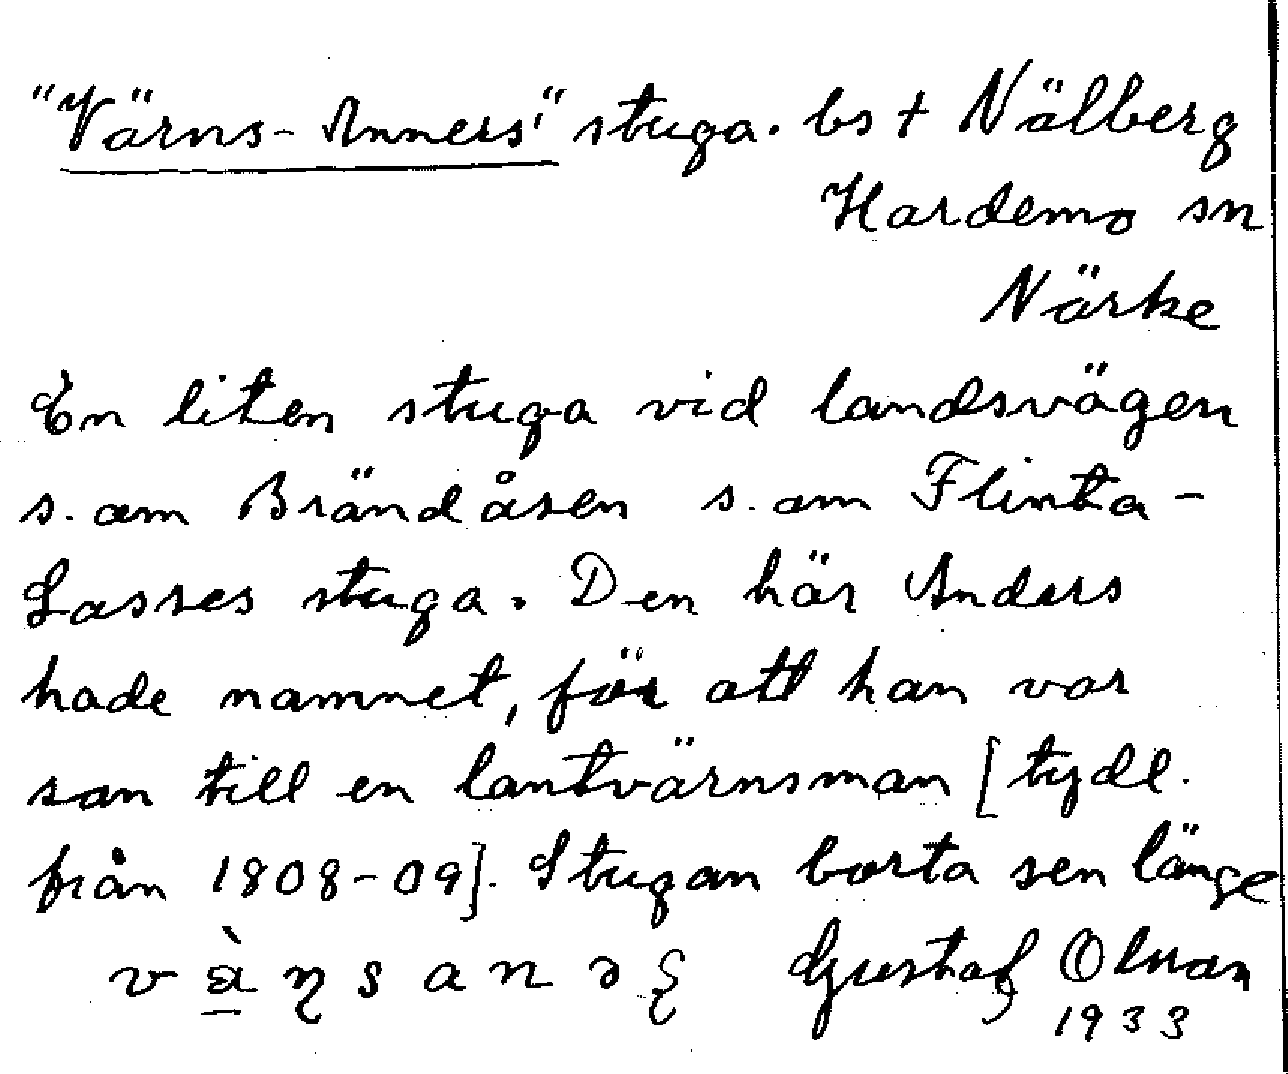 "Värns-Anners" stuga. bs † Nälberg
Hardemo sn
Närke
En liten stuga vid landsvägen
s. om Brändåsen s. om Flinta-
Lasses stuga. Den här Anders
hade namnet, för att han var
son till en lantvärnsman [tydl.
från 1808-09]. Stugan borta sen länge
Gustaf Olman
1933